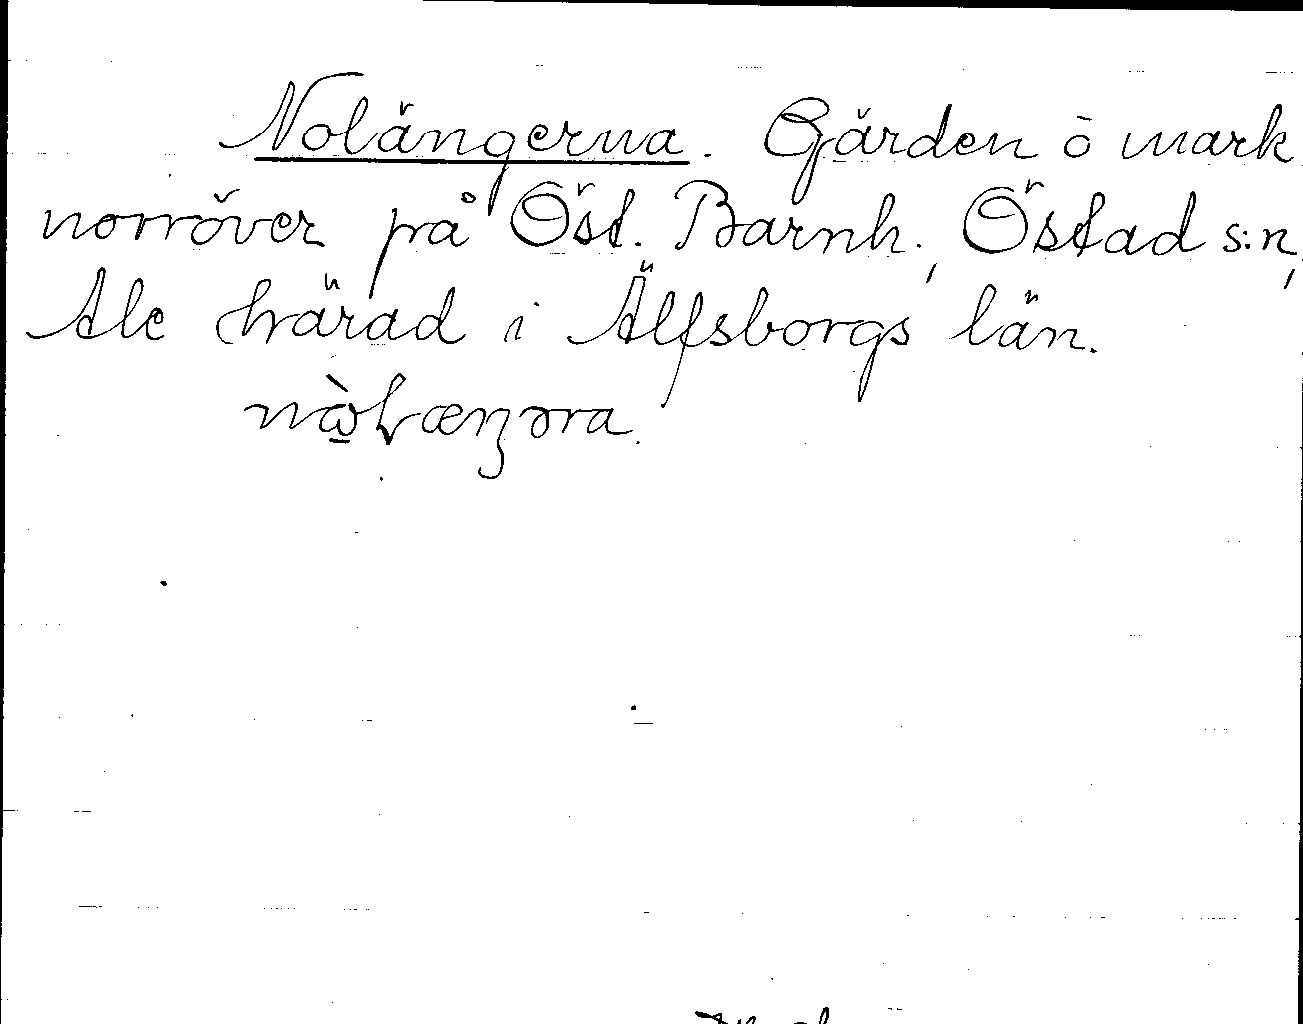 Nolängerna. Gärden ò mark
norröver på Öst. Barnh., Östad s:n,
Ale härad i Älfsborgs län.